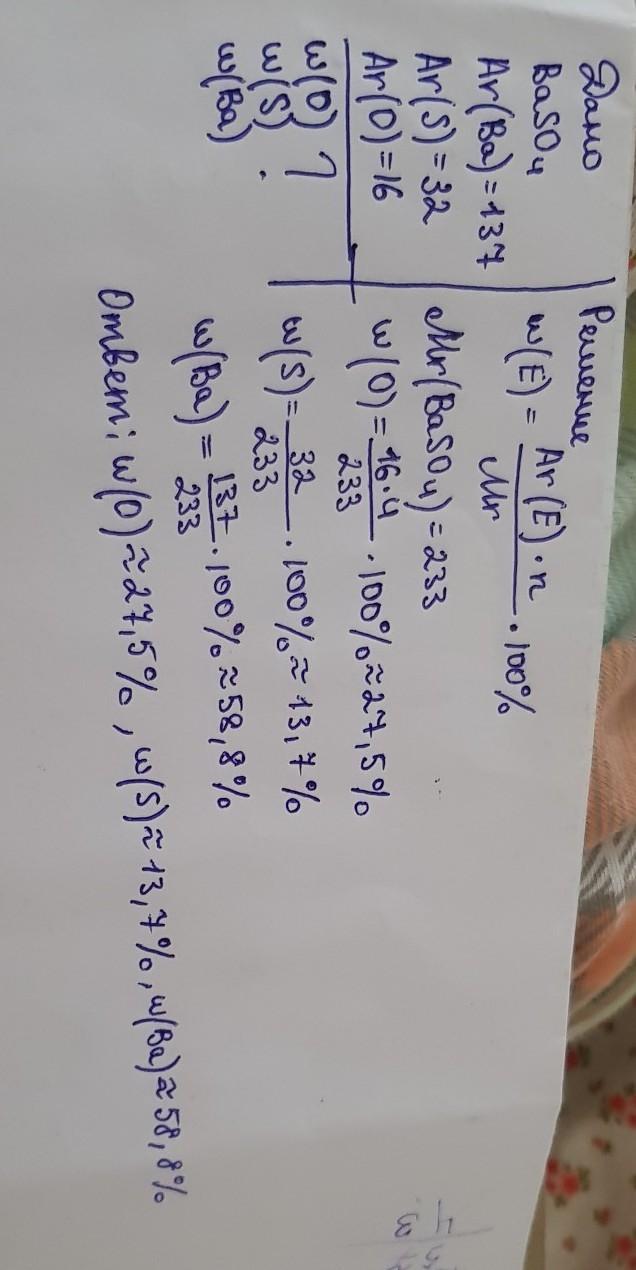 Дано
BaSO₄
Ar(Ba)=137
Ar(S)=32
Ar(O)=16
w(O) ?
w(S)
w(Ba)
Решение
w(E) = Ar(E)·n / Mr · 100%
Mr(BaSO₄) = 233
w(O) = 16·4 / 233 · 100% ≈ 27,5%
w(S) = 32 / 233 · 100% ≈ 13,7%
w(Ba) = 137 / 233 · 100% ≈ 58,8%
Ответ: w(O) ≈ 27,5%, w(S) ≈ 13,7%, w(Ba) ≈ 58,8%